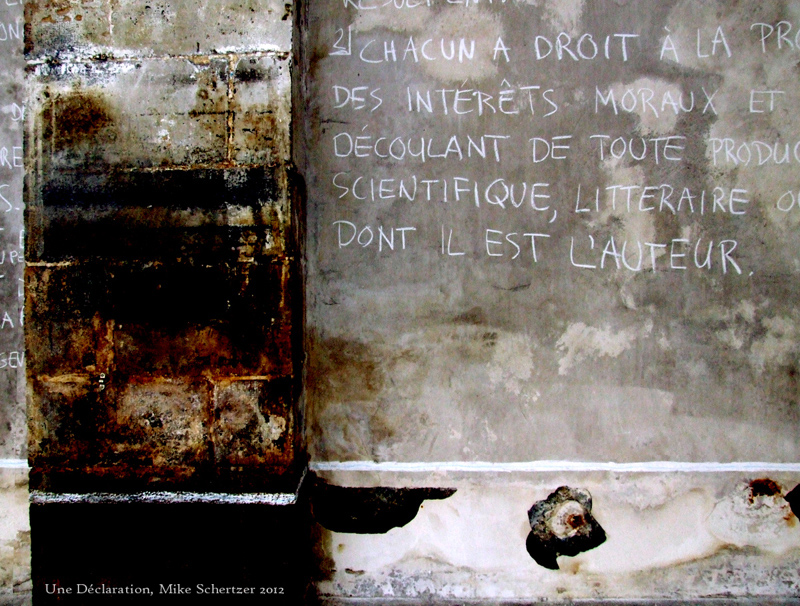 2) CHACUN A DROIT À LA PRO
DES INTÉRÊTS MORAUX ET
DÉCOULANT DE TOUTE PRODUC
SCIENTIFIQUE, LITTERAIRE OU
DONT IL EST L'AUTEUR.
Une Déclaration, Mike Schertzer 2012